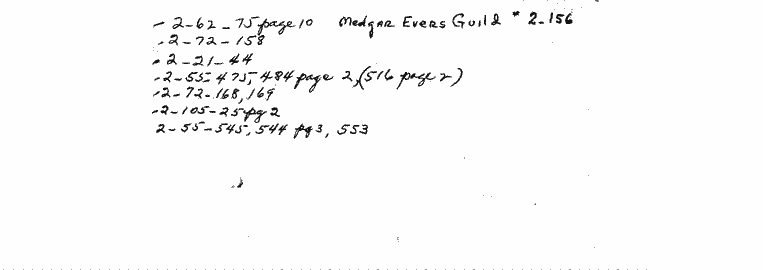 - 2-62-75 page 10 Medgar Evers Guild * 2-156
- 2-72-158
- 2-21-44
- 2-55-475, 484 page 2, (516 page 2)
- 2-72-168, 169
- 2-105-25 pg 2
2-55-545, 544 pg 3, 553